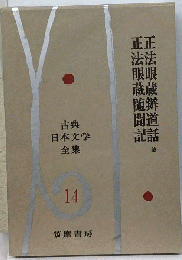 正法眼蔵辨道話 他
正法眼蔵随聞記
古典
日本文学
全集
14
筑摩書房